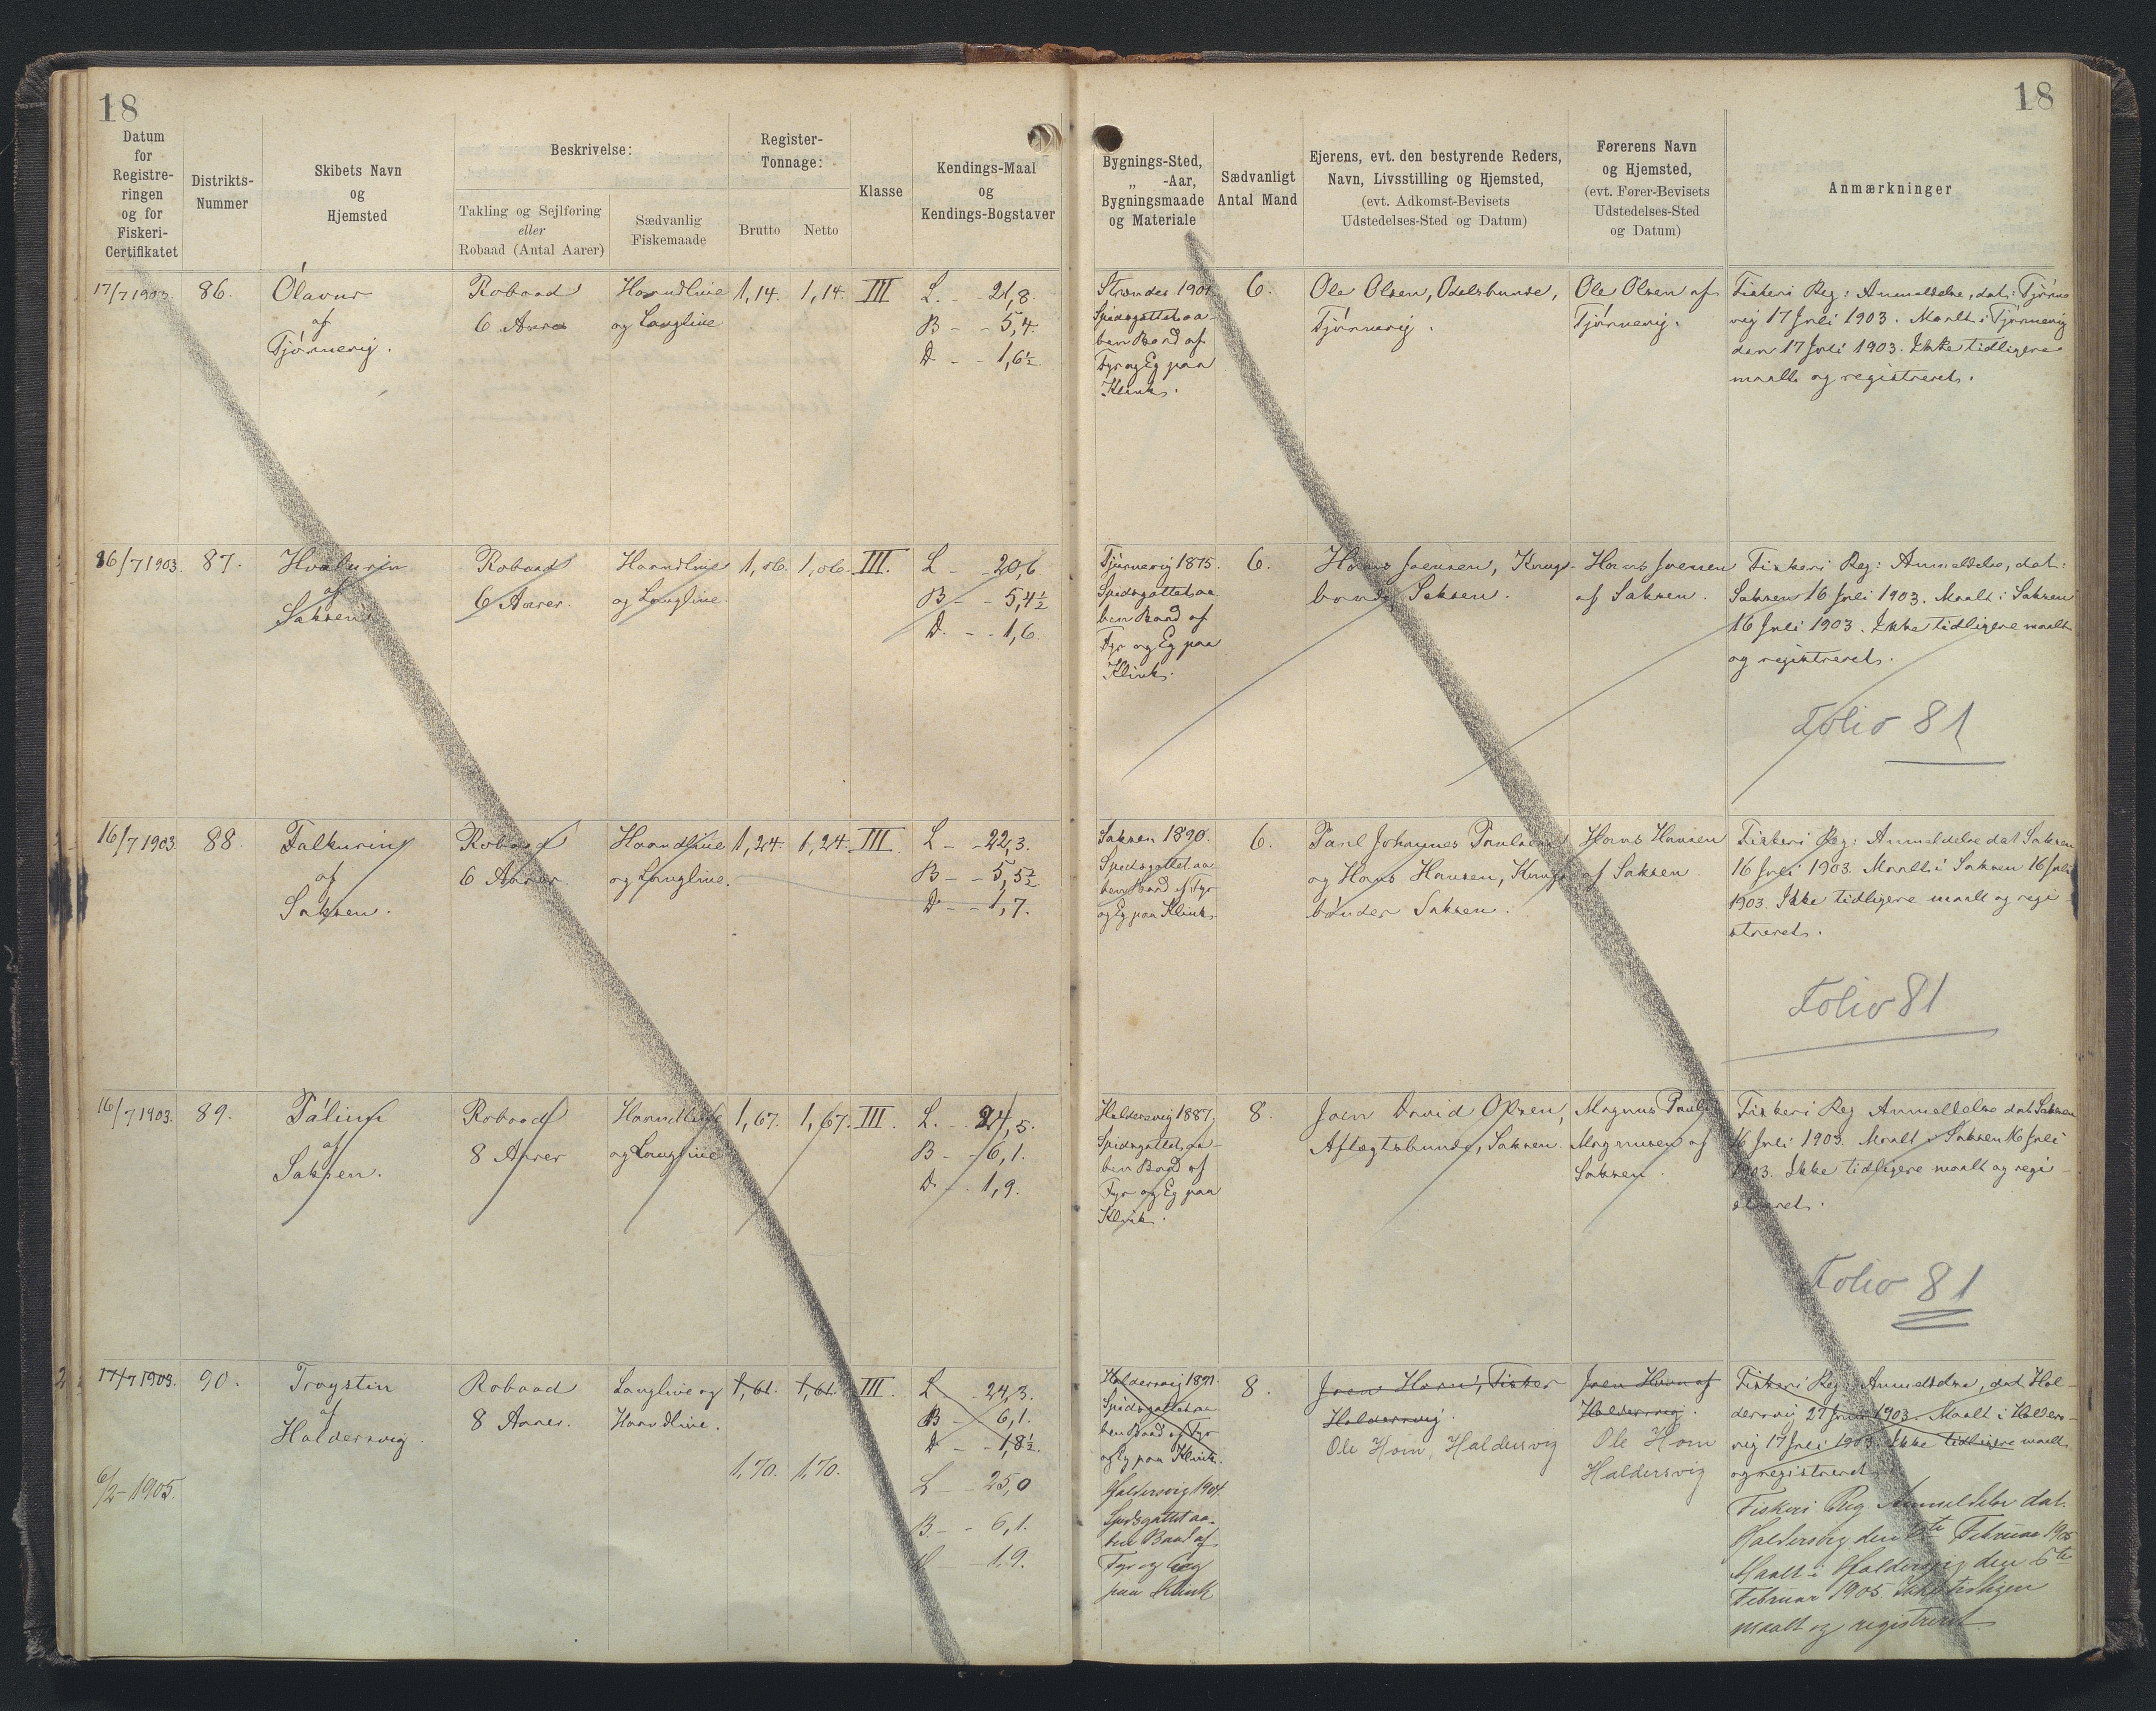 18
18
Datum
for
Registre-
ringen
og for
Fiskeri-
Certifikatet
Distrikts-
Nummer
Skibets Navn
og
Hjemsted
Beskrivelse:
Takling og Sejlføring
eller
Robaad (Antal Aarer)
Sædvanlig
Fiskemaade
Register-
Tonnage:
Brutto
Netto
Klasse
Kendings-Maal
og
Kendings-Bogstaver
Bygnings-Sted,
„ -Aar,
Bygningsmaade
og Materiale
Sædvanligt
Antal Mand
Ejerens, evt. den bestyrende Reders,
Navn, Livsstilling og Hjemsted,
(evt. Adkomst-Bevisets
Udstedelses-Sted og Datum)
Førerens Navn
og Hjemsted,
(evt. Fører-Bevisets
Udstedelses-Sted
og Datum)
Anmærkninger
17/7 1903.
86.
Ólavur
af
Tjørnevig.
Robaad
6 Aarer
Haandline
og Langline
1,14.
1,14.
III
L. - - 21,8.
B - - 5,4.
D. - - 1,6½
Strender 1901
Spidsgattet aa-
ben Baad af
Fyr og Eg paa
Klink.
6.
Ole Olsen, Odelsbunde,
Tjørnevig.
Ole Olsen af
Tjørnevig.
Fiskeri Reg: Anmeldelse, dat: Tjørne
vig 17 Juli 1903. Maalt i Tjørnevig
den 17 Juli 1903. Ikke tidligere
maalt og registreret.
16/7 1903.
87.
Hvalurin
af
Saksen
Robaad
6 Aarer.
Haandline
og Langline.
1,06.
1,06.
III.
L - - 20,6
B - - 5,4½
D. - - 1,6.
Tjørnevig 1875.
Spidsgattet aa
ben Baad af
Fyr og Eg paa
Klink.
6.
Hans Joensen, Kongs-
bonde, Saksen.
Hans Joensen
af Saksen.
Fiskeri Reg: Anmeldelse, dat:
Saksen 16 Juli 1903. Maalt i Saksen
16 Juli 1903. Ikke tidligere maalt
og registreret.
Folio 81
16/7 1903
88.
Falkurin
af
Saksen.
Robaad
6 Aarer.
Haandline
og Langline.
1,24.
1,24.
III.
L - - 22,3.
B - - 5,5½
D - - 1,7.
Saksen 1890.
Spidsgattet aa
ben Baad af Fyr
og Eg paa Klink.
6.
Paul Johannes Poulsen
og Hans Hansen, Kongs
bønder Saksen.
Hans Hansen
af Saksen.
Fiskeri Reg: Anmeldelse dat Saksen
16 Juli 1903. Maalt i Saksen 16 Juli
1903. Ikke tidligere maalt og regi-
streret.
Folio 81
16/7 1903.
89.
Pálin
af
Saksen.
Robaad
8 Aarer
Haandline
og Langline
1,67.
1,67.
III.
L. - 24,5.
B - - 6,1.
D - - 1,9.
Haldersvig 1887,
Spidsgattet, aa-
ben Baad af
Fyr og Eg paa
Klink.
8.
Joen David Olsen,
Aftægtsbunde, Saksen.
Magnus Pauli
Magnusen af
Saksen.
Fiskeri Reg Anmeldelse dat Saksen
16 Juli 1903. Maalt i Saksen 16 Juli
1903. Ikke tidligere maalt og regi-
streret.
Folio 81
17/7 1903.
90.
Troystin
af
Haldersvig.
Robaad
8 Aarer.
Langline og
Haandline.
1,61.
1,61.
III.
L - 24,3.
B - 6,1.
D - - 1,8½.
Haldersvig 1891.
Spidsgattet aa
ben Baad af Fyr
og Eg paa Klink.
8.
Joen Horn, Fisker
Haldersvig.
Joen Horn af
Haldersvig.
Fiskeri Reg: Anmeldelse, dat Hal-
dersvig 27 Juli 1903. Maalt i Halders-
vig 17 Juli 1903. Ikke tidligere maalt
og registreret.
6/2 - 1905.
1,70.
1,70.
L - - 25,0
B - - 6,1.
D - - 1,9.
Haldersvig 1904.
Spidsgattet aa-
ben Baad af
Fyr og Eeg
paa Klink
Ole Horn, Haldersvig
Ole Horn
Haldersvig
Fiskeri Reg Anmeldelse dat.
Haldersvig den 6te Februar 1905
Maalt i Haldersvig den 6te
Februar 1905 Ikke tidligere
maalt og registreret